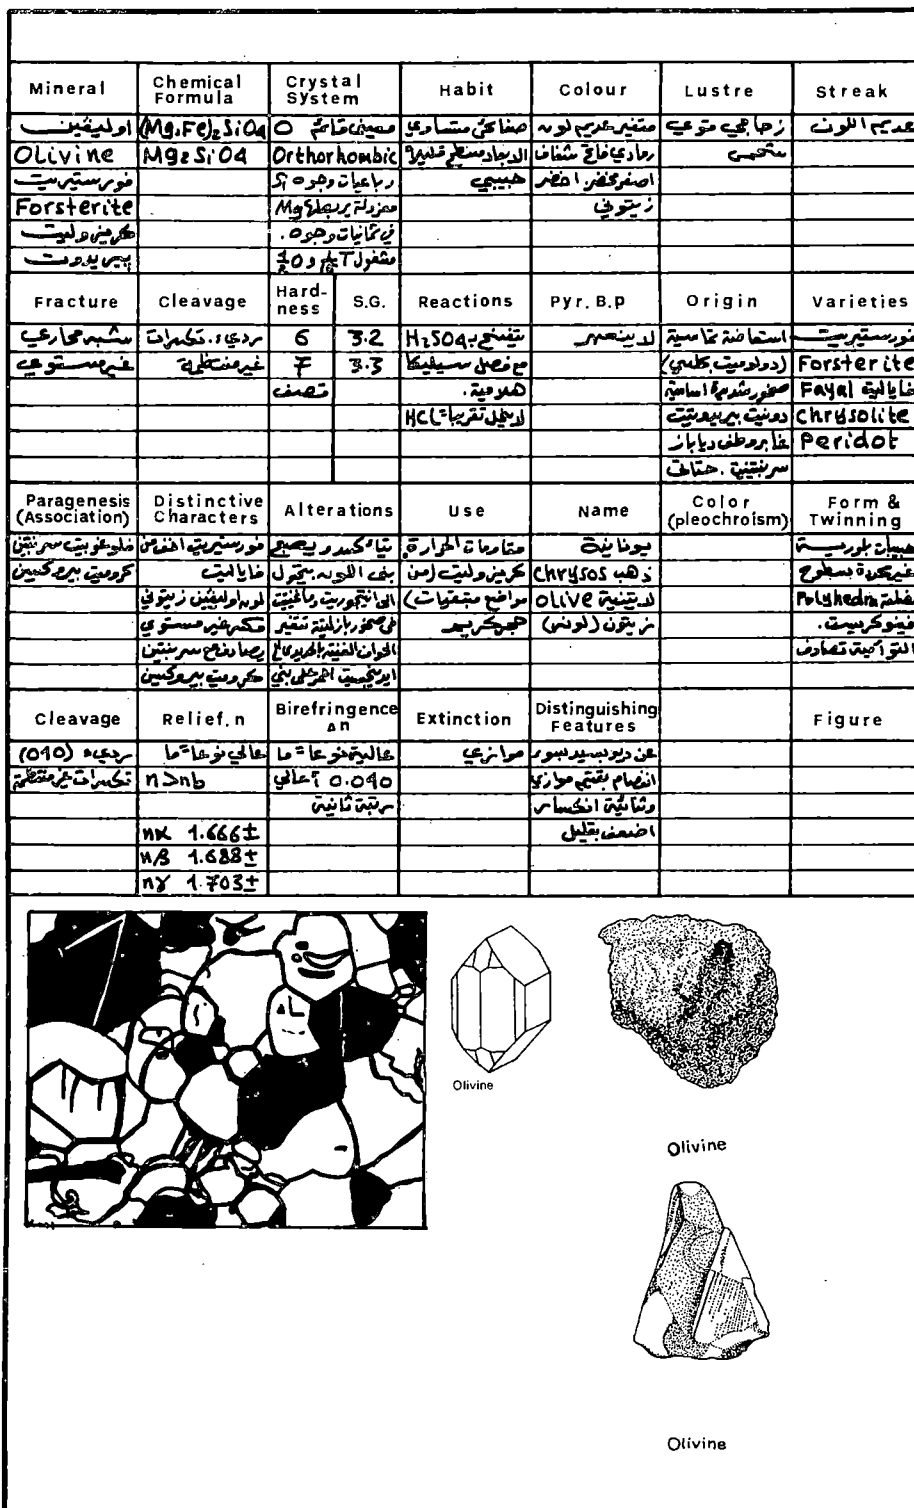 Mineral Chemical Formula Crystal System Habit Colour Lustre Streak
اوليفين (Mg,Fe)2SiO4 معيني قائم O صفائحي متساوي متغير عديم لون زجاجي قوي عديم اللون
Olivine Mg2SiO4 Orthorhombic الابعاد مسطح رمادي فاتح شفاف شحمي
فورستيريت رباعيات وجوه Si حبيبي اصفر مخضر اخضر
Forsterite Mg زيتوني
كريزوليت في ثمانيات وجوه.
بيريدوت
Fracture Cleavage Hardness S.G. Reactions Pyr. B.p Origin Varieties
شبه محاري رديء، تكسرات 6 3.2 H2SO4 لا ينصهر استحاضة تماسية فورستيريت
غير مستوي غير منتظمة 7 3.3 مع فصل سيليكا (دولوميت، كلسي) Forsterite
تصف هلامية. Fayal
لا ينحل تقريبا HCl دونيت بيريدوتيت Chrysolite
غابرو دياباز Peridot
سربنتين.
Paragenesis (Association) Distinctive Characters Alterations Use Name Color (pleochroism) Form & Twinning
سربنتين فورستيريت يتأكسد ويصبح مقاومات الحرارة يونانية حبيبات بلورية
كروميت بيروكسين فاياليت بني اللون يتحول كريزوليت (من ذهب Chrysos غير محددة بسطوح
لون اوليفين زيتوني مواضع لاتينية Olive Polyhedra
مكسر غير مستوي في صخور بازلتية حجر كريم زيتون (لونه) فينوكريست.
يصادف مع سربنتين الحواف الغنية بالحديد التوأمية تصادف
كروميت بيروكسين احمر بني
Cleavage Relief, n Birefringence Δn Extinction Distinguishing Features Figure
رديء (010) عالي نوعا ما عالية نوعا ما موازي عن ديوبسيد
تكسرات غير منتظمة n>nb 0.040 انطفاء موازي
مرتبة ثانية وثنائية انكسار
nα 1.666± اضعف بقليل
nβ 1.688±
nγ 1.703±
Olivine
Olivine
Olivine